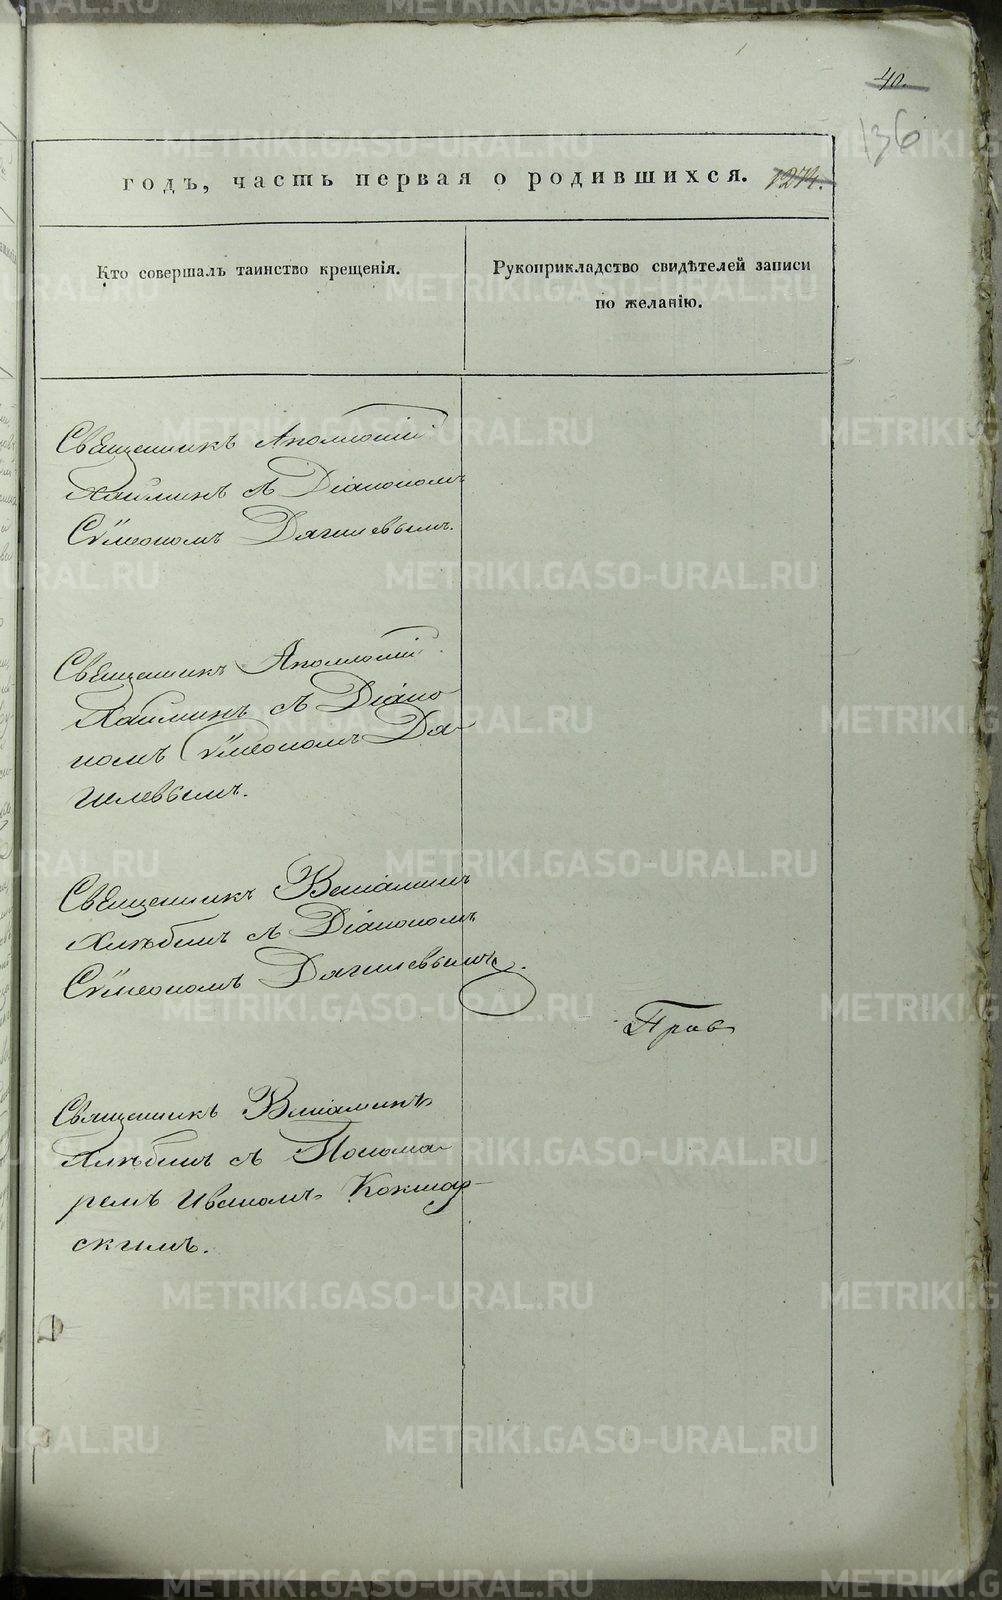 40.
136
годъ, часть первая о родившихся. 1274.
Кто совершалъ таинство крещенія.
Рукоприкладство свидѣтелей записи
по желанію.
Священникъ Аполлоній
съ Діакономъ
Сѵмеономъ Дягилевымъ.
Священникъ Аполлоній
съ Діако
номъ Сѵмеономъ Дя-
гилевымъ.
Священникъ Веніаминъ
Хлѣбинъ съ Діакономъ
Сѵмеономъ Дягилевымъ.
Прав
Священникъ Веніаминъ
Хлѣбинъ съ Понома-
ремъ Иваномъ Кокшар-
скимъ.
METRIKI.GASO-URAL.RU